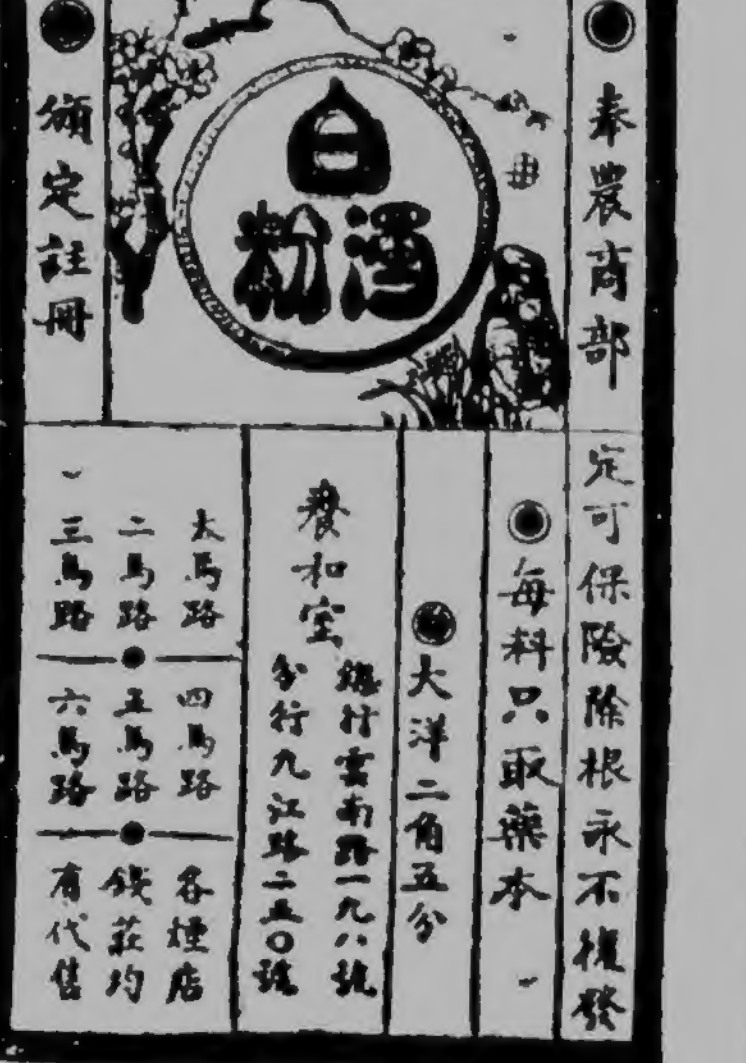 奉農商部
頒定註冊
白濁粉
定可保險除根永不復發
每料只取藥本
大洋二角五分
養和堂
總行雲南路一九八號
分行九江路二五〇號
大馬路
二馬路
三馬路
四馬路
五馬路
六馬路
各煙店
錢莊均
有代售